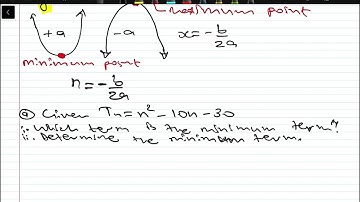 maximum point
+a
-a
x = -b/2a
minimum point
n = -b/2a
ⓐ Given Tn = n² - 10n - 30
i. Which term is the minimum term?
ii. Determine the minimum term.